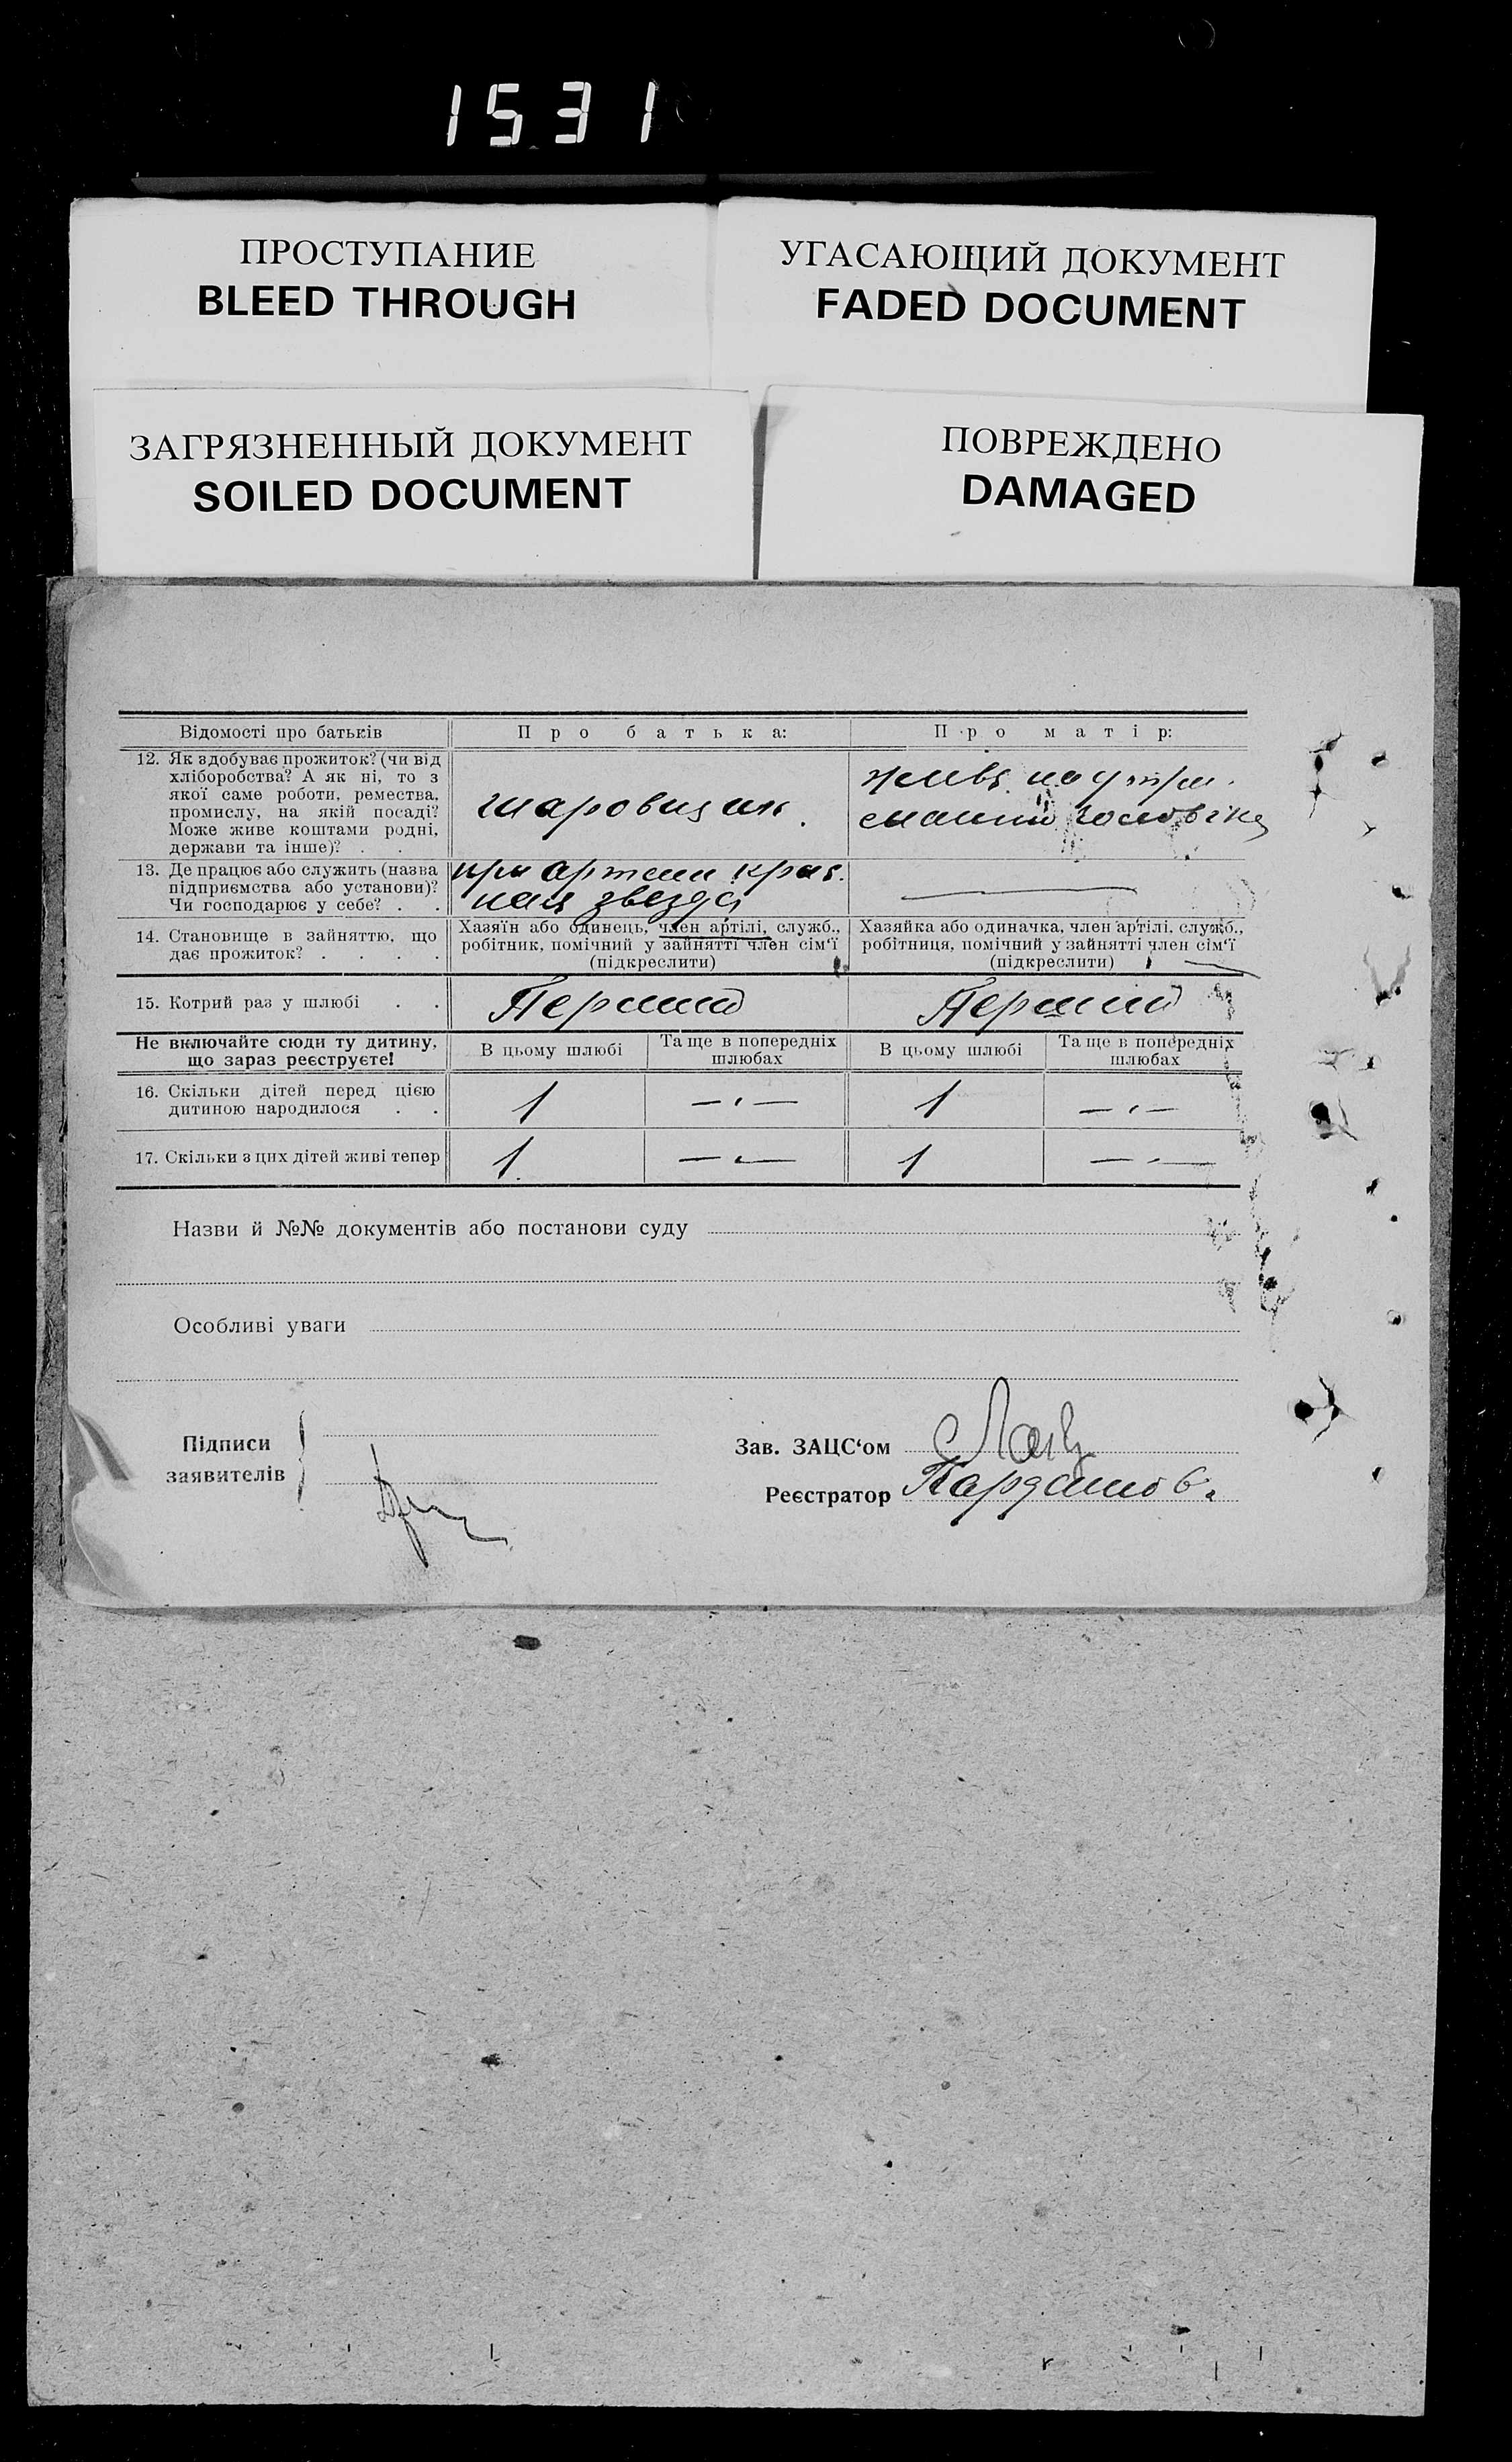 1531
ПРОСТУПАНИЕ
BLEED THROUGH
УГАСАЮЩИЙ ДОКУМЕНТ
FADED DOCUMENT
ЗАГРЯЗНЕННЫЙ ДОКУМЕНТ
SOILED DOCUMENT
ПОВРЕЖДЕНО
DAMAGED
Відомості про батьків
Про батька:
Про матір:
12. Як здобуває прожиток? (чи від
хліборобства? А як ні, то з
якої саме роботи, ремества,
промислу, на якій посаді?
Може живе коштами родні,
держави та інше)? . .
живе на утри
манні чоловіка
13. Де працює або служить (назва
підприємства або установи)?
Чи господарює у себе? . .
при артели крас.
ная звезда
—
14. Становище в зайняттю, що
дає прожиток? . . . .
Хазяїн або одинець, член артілі, служб.,
робітник, помічний у зайнятті член сім‘ї
(підкреслити)
Хазяйка або одиначка, член артілі, служб.,
робітниця, помічний у зайнятті член сім‘ї
(підкреслити)
15. Котрий раз у шлюбі . .
Перший
Перший
Не включайте сюди ту дитину,
що зараз реєструєте!
В цьому шлюбі
Та ще в попередніх
шлюбах
В цьому шлюбі
Та ще в попередніх
шлюбах
16. Скільки дітей перед цією
дитиною народилося . .
1
— · —
1
— · —
17. Скільки з цих дітей живі тепер
1
— · —
1
— · —
Назви й №№ документів або постанови суду
Особливі уваги
Підписи
заявителів
Зав. ЗАЦС‘ом
Реєстратор